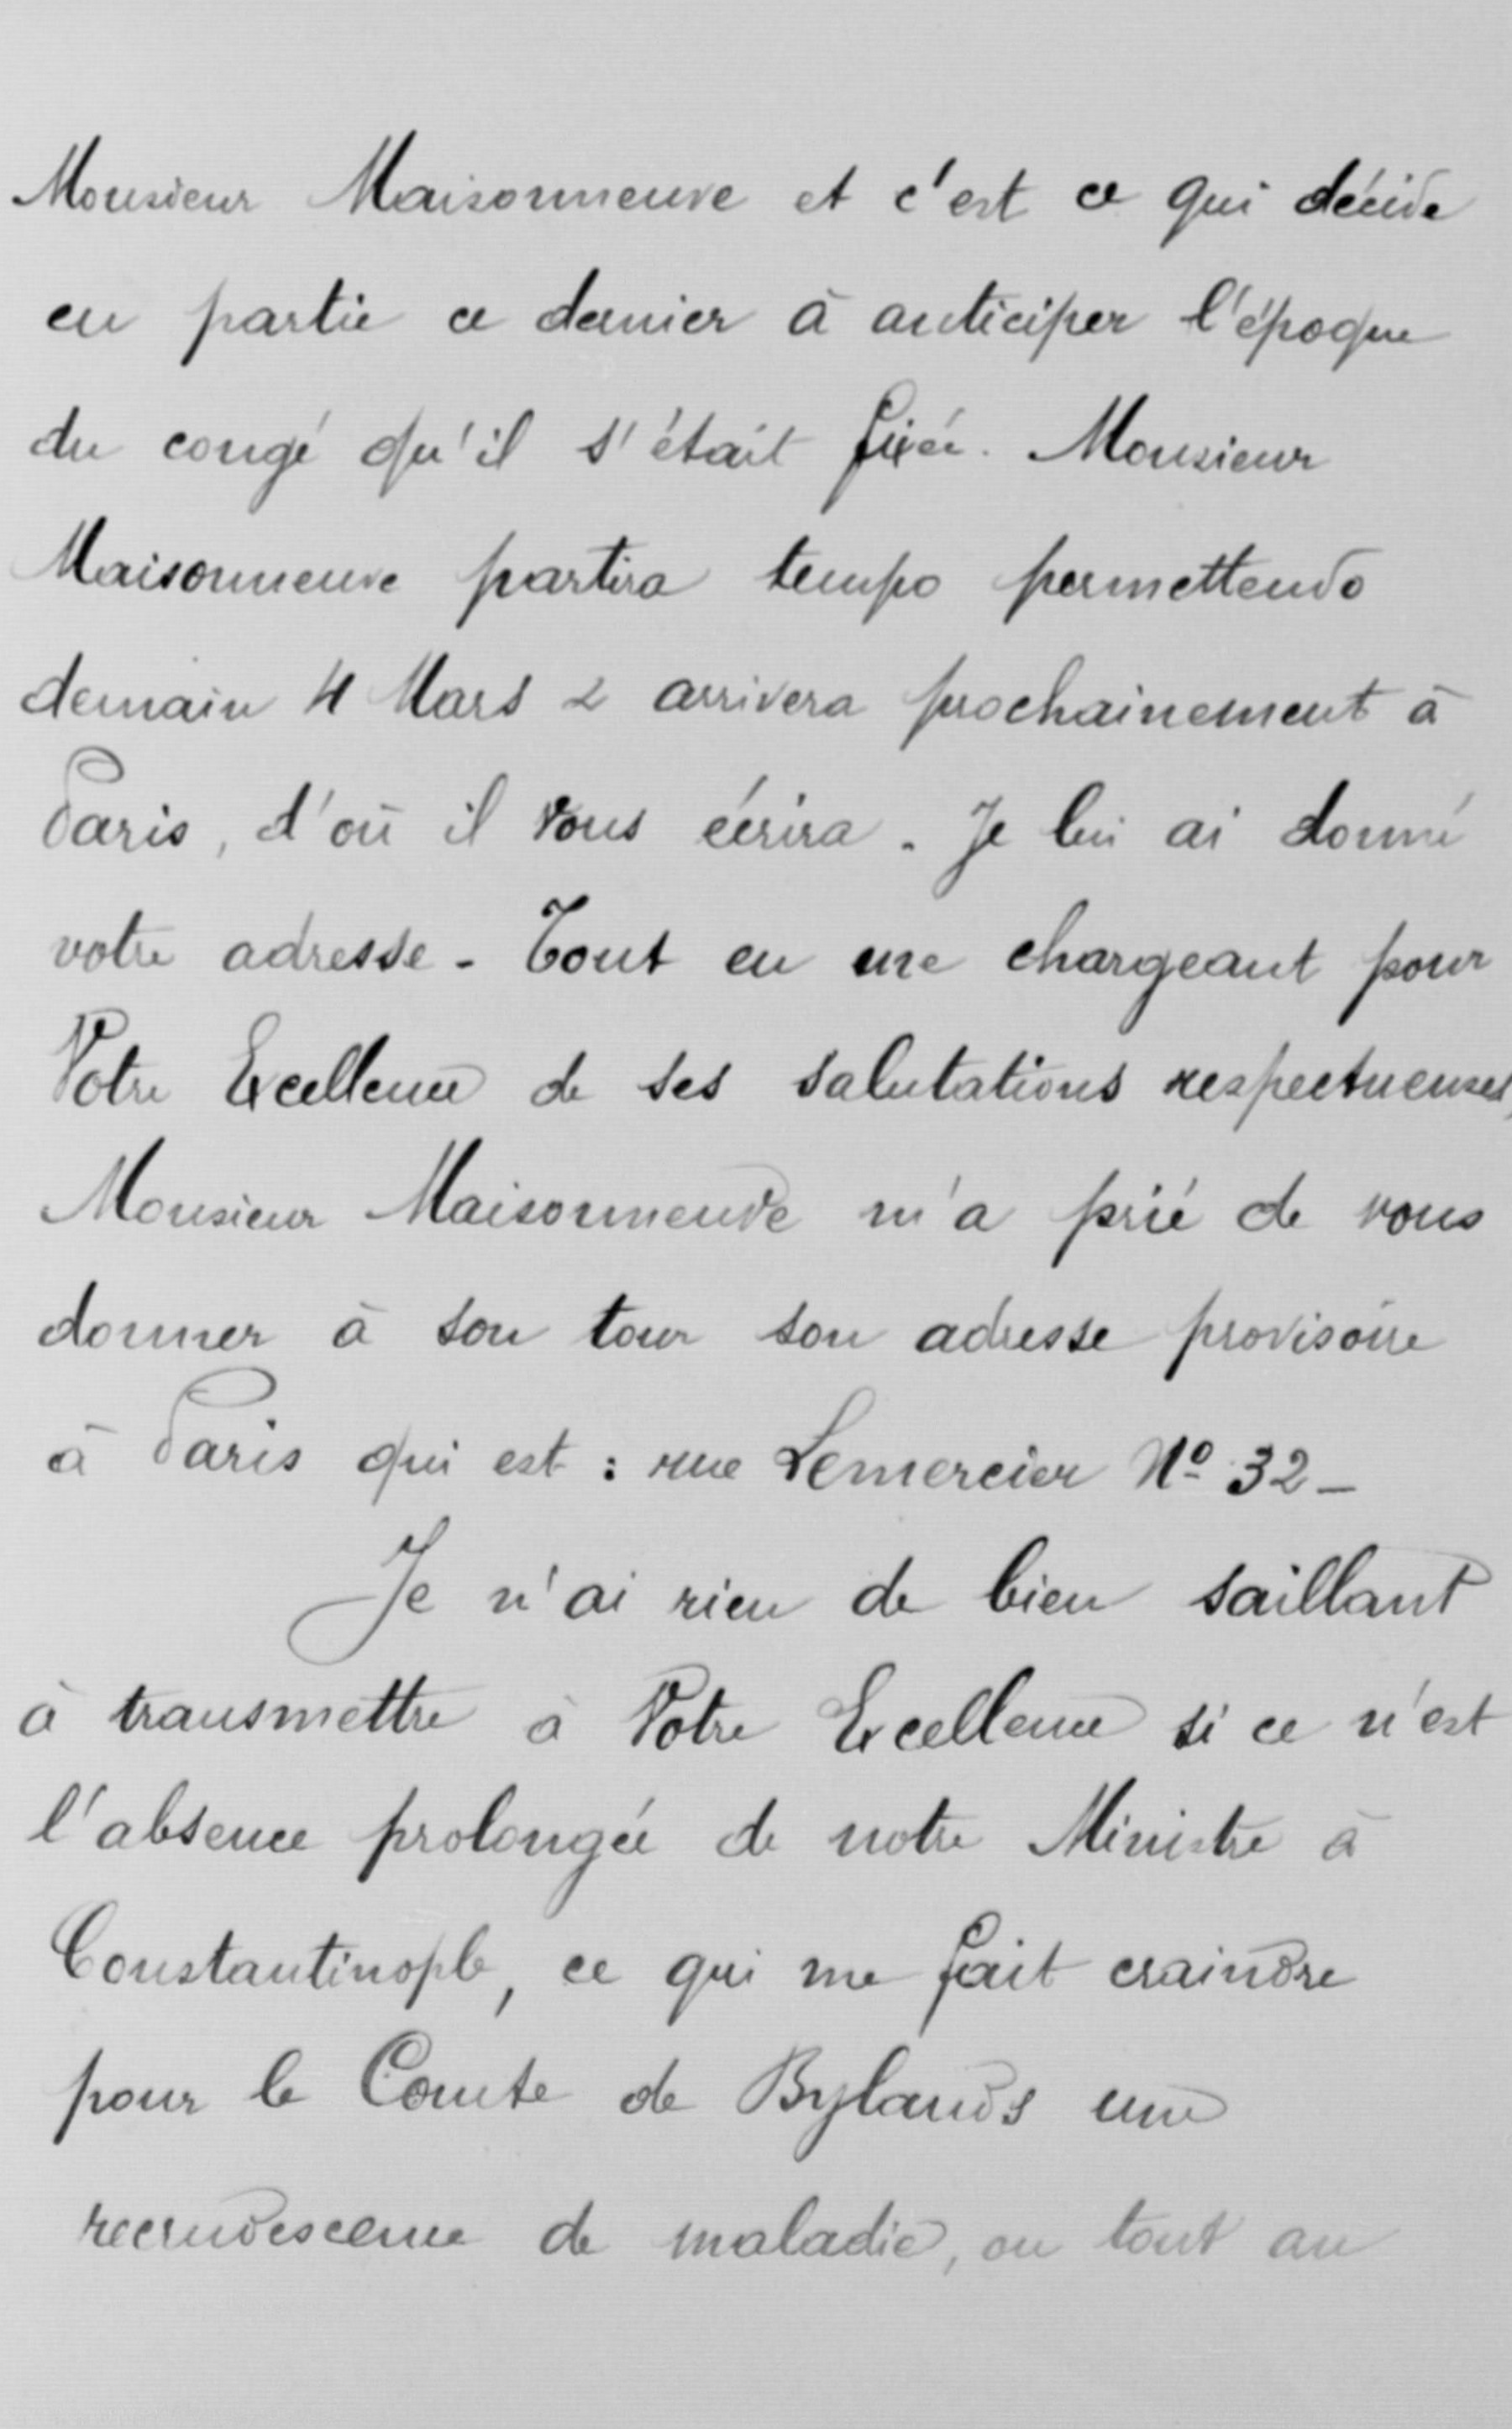 Monsieur Maisonneuve et c'est ce qui décide
en partie ce dernier à anticiper l'époque
du congé qu'il s'était fixée. Monsieur
Maisonneuve partira tempo permettendo
demain 4 Mars & arrivera prochainement à
Paris, d'où il vous écrira. Je lui ai donné
votre adresse - Tout en me chargeant pour
Votre Excellence de ses salutations respectueuses,
Monsieur Maisonneuve m'a prié de vous
donner à son tour son adresse provisoire
à Paris qui est : rue Lemercier Nº 32 -
Je n'ai rien de bien saillant
à transmettre à Votre Excellence si ce n'est
l'absence prolongée de notre Ministre à
Constantinople, ce qui me fait craindre
pour le Comte de Bylands une
recrudescence de maladie, ou tout au